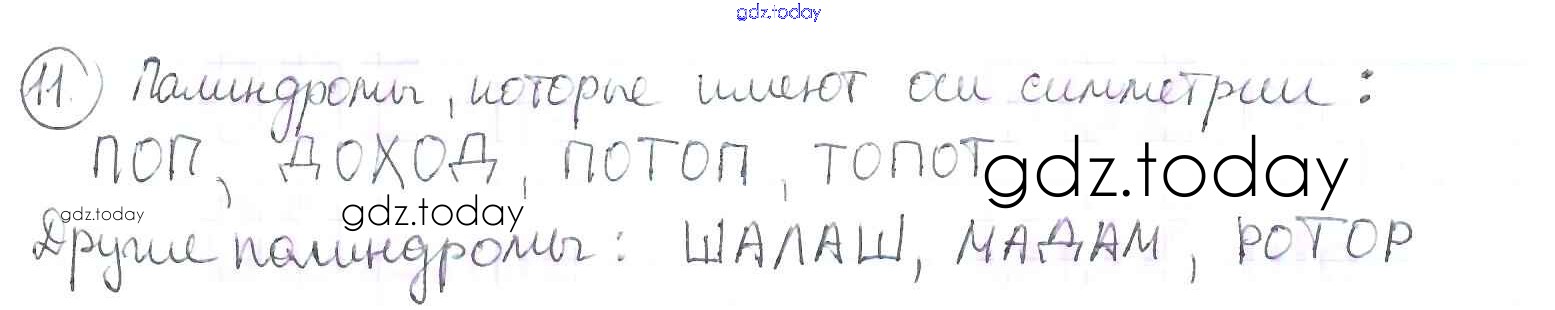 gdz.today
11. Палиндромы, которые имеют оси симметрии:
ПОП, ДОХОД, ПОТОП, ТОПОТ
gdz.today
gdz.today
gdz.today
Другие палиндромы: ШАЛАШ, МАДАМ, РОТОР